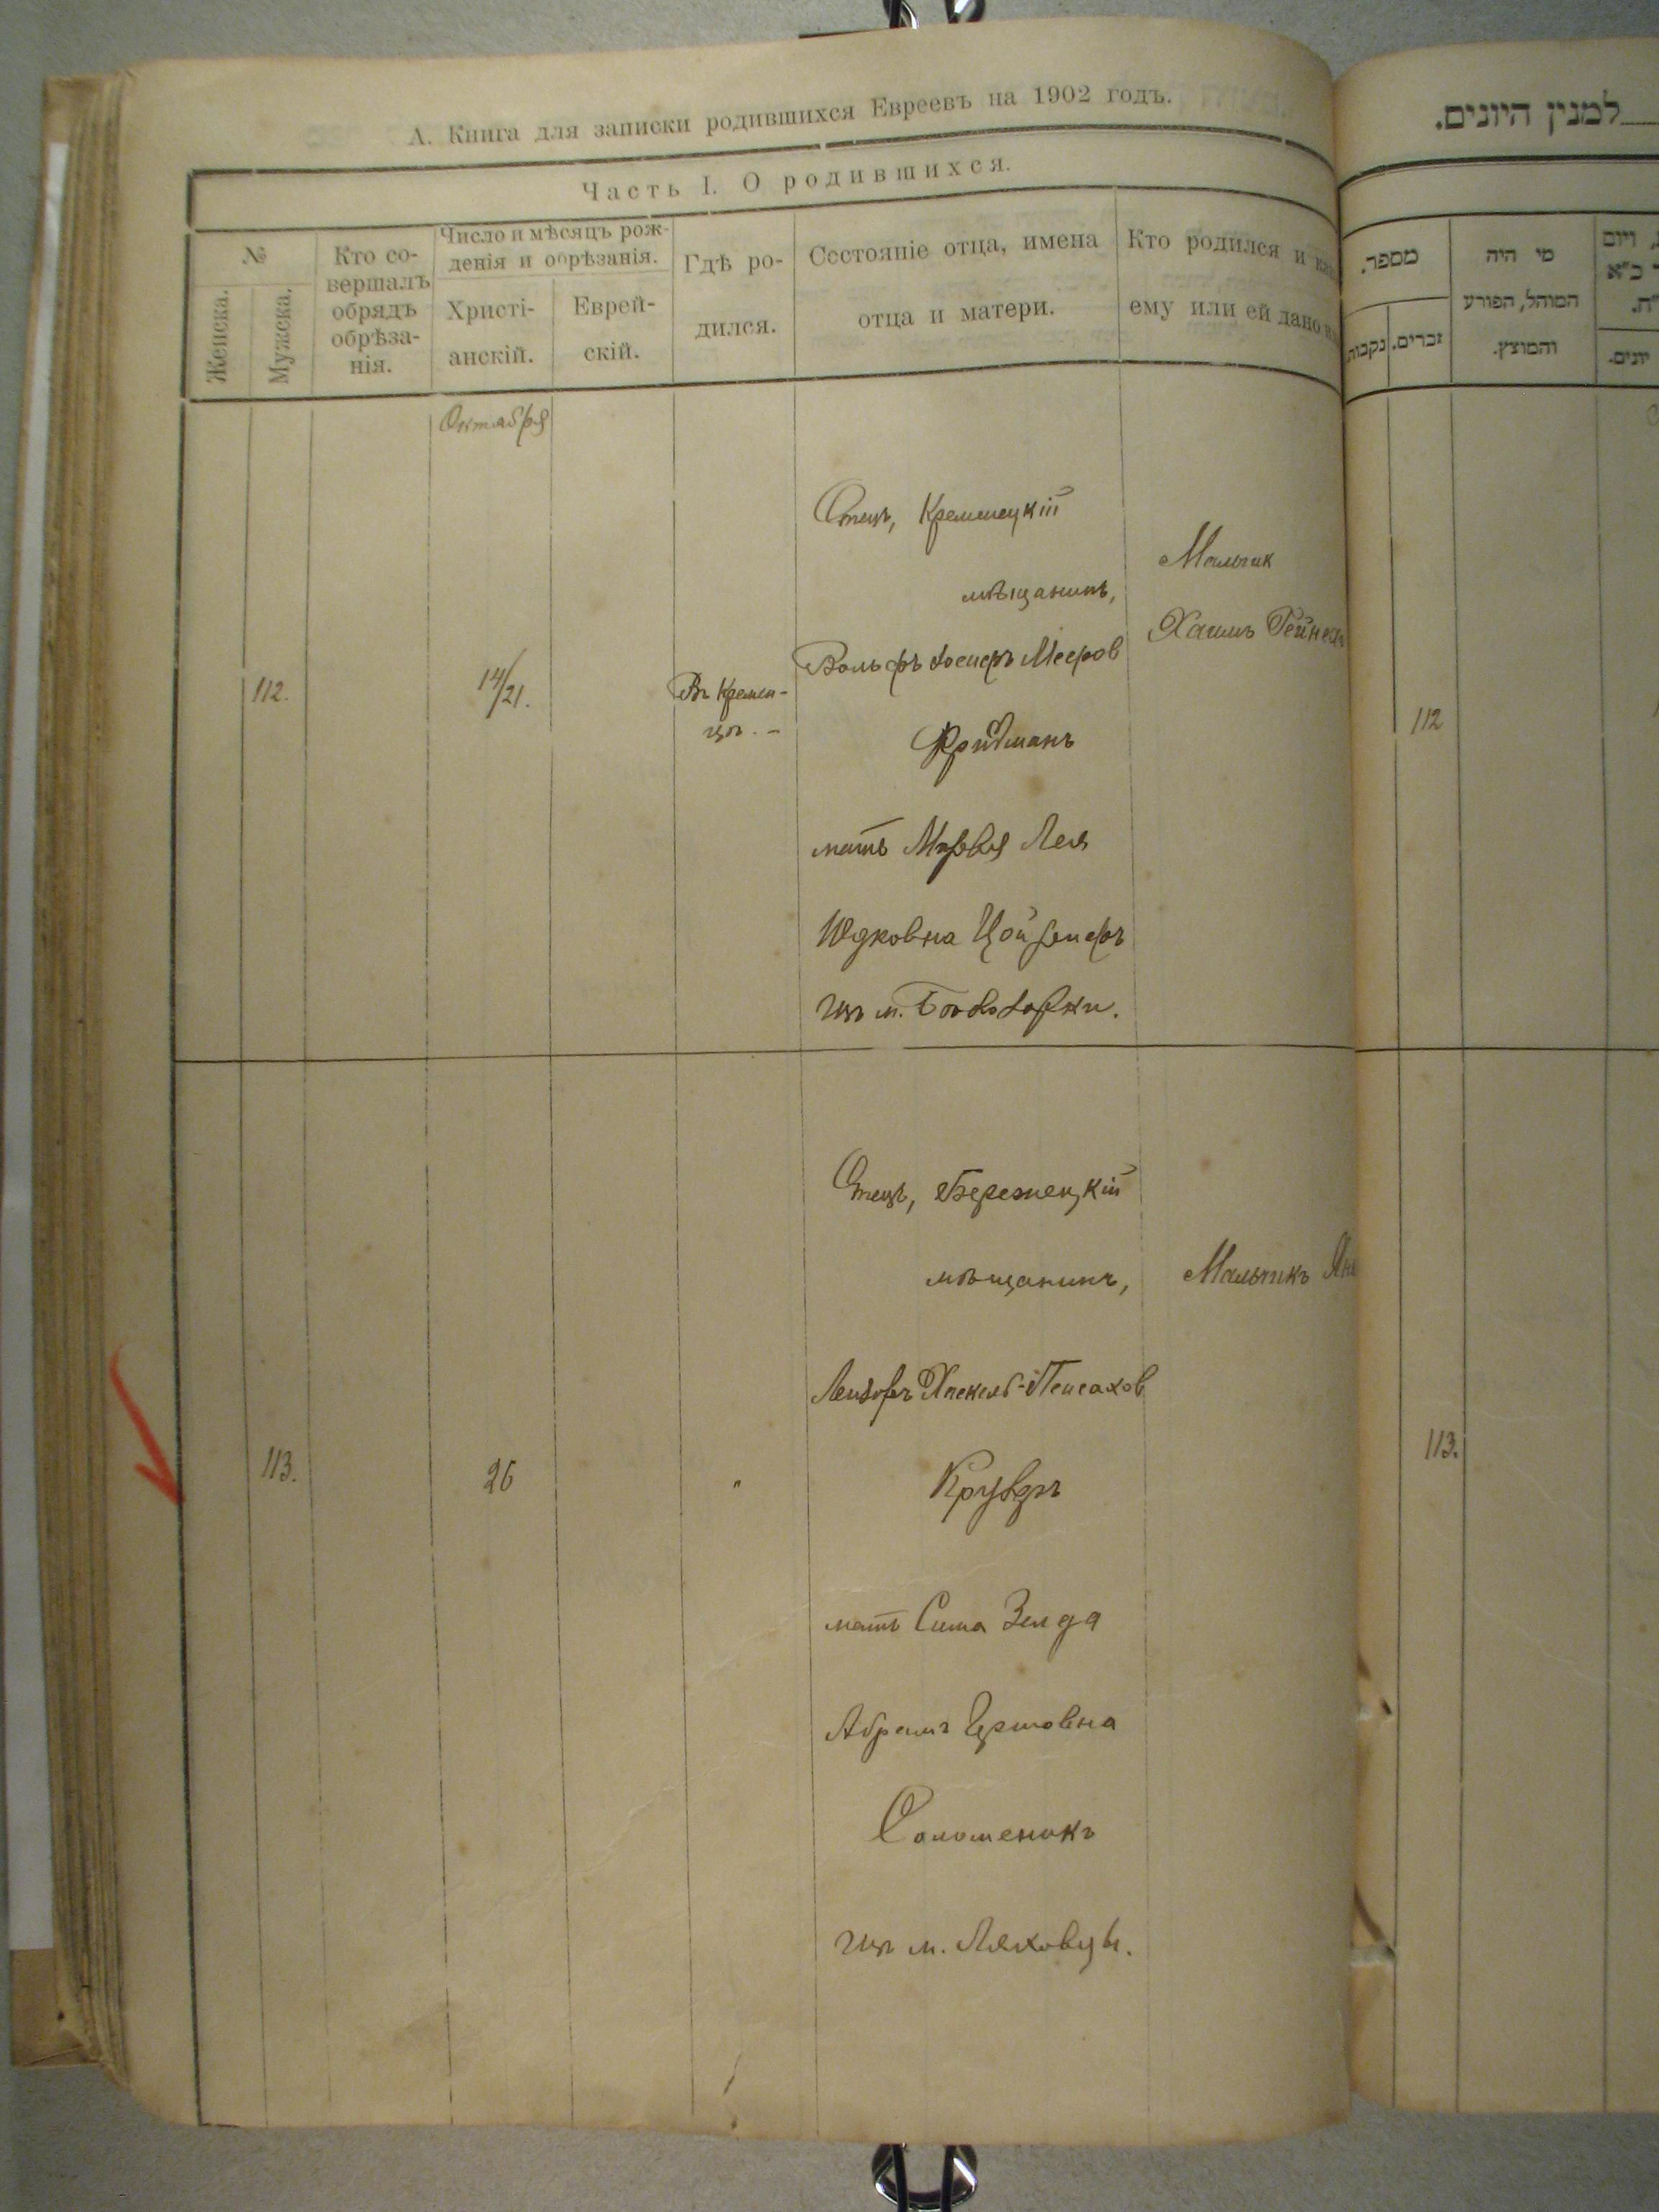 А. Книга для записки родившихся Евреевъ на 1902 годъ.
Часть I. О родившихся.
№
Женска.
Мужска.
Кто со-
вершалъ
обрядъ
обрѣза-
нія.
Число и мѣсяцъ рож-
денія и обрѣзанія.
Христі-
анскій.
Еврей-
скій.
Гдѣ ро-
дился.
Состояніе отца, имена
отца и матери.
Кто родился и
ему или ей дано
Октября
112.
14/21.
Въ Кремен-
цѣ. -
Отецъ, Кременецкій
мѣщанинъ,
Вольфъ Іосифъ Мееров
Фридманъ
мать Лея
Юдковна
изъ м.
Мальчик
Хаимъ
113.
26
"
Отецъ, Бережецкій
мѣщанинъ,
Лейзоръ Хаскель-Пейсахов
мать Сима Зелда
Абрамъ
Соломеникъ
изъ м. Ляховцы.
Мальчикъ
למנין היונים.
מספר.
זכרים.
נקבות.
מי היה
המוהל, הפורע
והמוצץ.
ויום
יונים.
112
113.